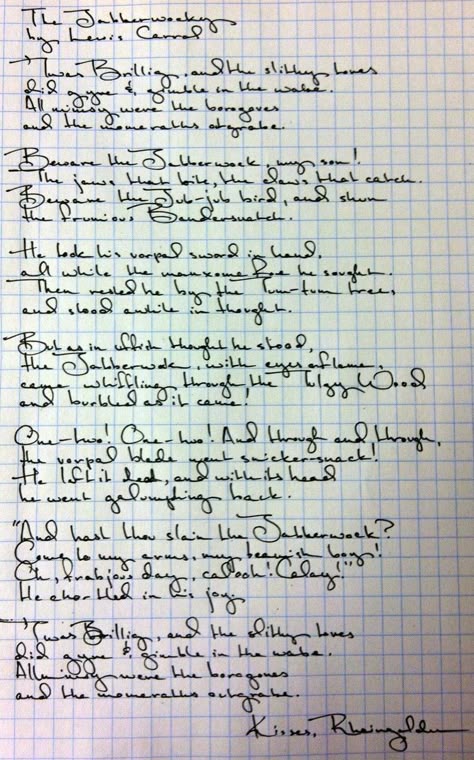 The Jabberwockey
by Lewis Carrol
'Twas Brillig, and the slithey toves
did gyre & gimble in the wabe.
All mimsy were the borogoves
and the momeraths outgrabe.
Beware the Jabberwock, my son!
The jaws that bite, the claws that catch.
Beware the Jub-jub bird, and shun
the frumious Bandersnatch.
He took his vorpal sword in hand,
all while the manxome Foe he sought.
Then rested he by the Tum-tum tree,
and stood awhile in thought.
But as in uffish thought he stood,
the Jabberwock, with eyes aflame,
came whiffling through the Tulgy Wood
and burbled as it came!
One-two! One-two! And through and through,
the vorpal blade went snicker-snack!
He left it dead, and with its head
he went galumphing back.
"And hast thou slain the Jabberwock?
Come to my arms, my beamish boy!
Oh, frabjous day, calooh! Calay!"
He chortled in his joy.
'Twas Brillig, and the slithey toves
did gyre & gimble in the wabe.
All mimsy were the borogoves
and the momeraths outgrabe.
Kisses,